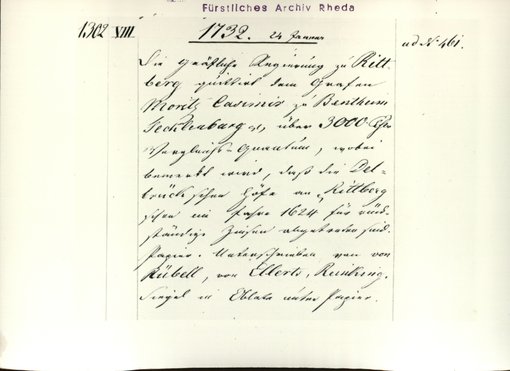 Fürstliches Archiv Rheda
1302 XIII.
1732. 24 Januar
ad No 461.
Die Gräfliche Regierung zu Ritt-
berg quittirt dem Grafen
Moritz Casimir zu Bentheim
Tecklenburg über 3000
Vergleichs-Quantum, wobei
bemerkt wird, daß die Del-
brück'schen Höfe an Rittberg
schon im Jahre 1624 für rück-
ständige Zinsen abgetreten sind.
Papier. Unterschrieben von von
Rübell, von Ellerts,
Siegel in Oblate unter Papier.